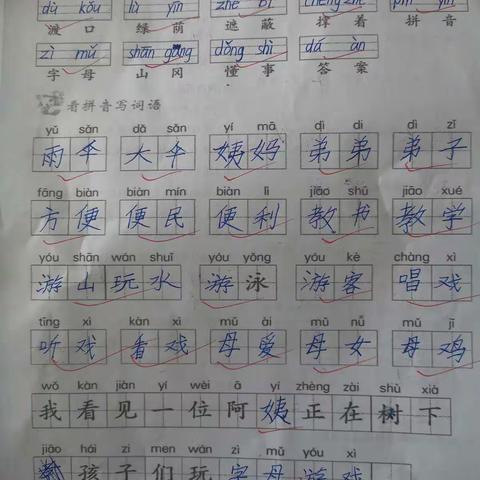 dù kǒu lǜ yīn zhē bì chēng zhe pīn yīn
渡口 绿荫 遮蔽 撑着 拼音
zì mǔ shān gāng dǒng shì dá àn
字母 山冈 懂事 答案
看拼音写词语
yǔ sǎn dǎ sǎn yí mā dì di dì zǐ
雨伞 大伞 姨妈 弟弟 弟子
fāng biàn biàn mín biàn lì jiāo shū jiāo xué
方便 便民 便利 教书 教学
yóu shān wán shuǐ yóu yǒng yóu kè chàng xì
游山玩水 游泳 游客 唱戏
tīng xì kàn xì mǔ ài mǔ nǚ mǔ jī
听戏 看戏 母爱 母女 母鸡
wǒ kàn jiàn yí wèi ā yí zhèng zài shù xià
我看见一位阿姨正在树下
jiāo hái zi men wán zì mǔ yóu xì
教孩子们玩字母游戏